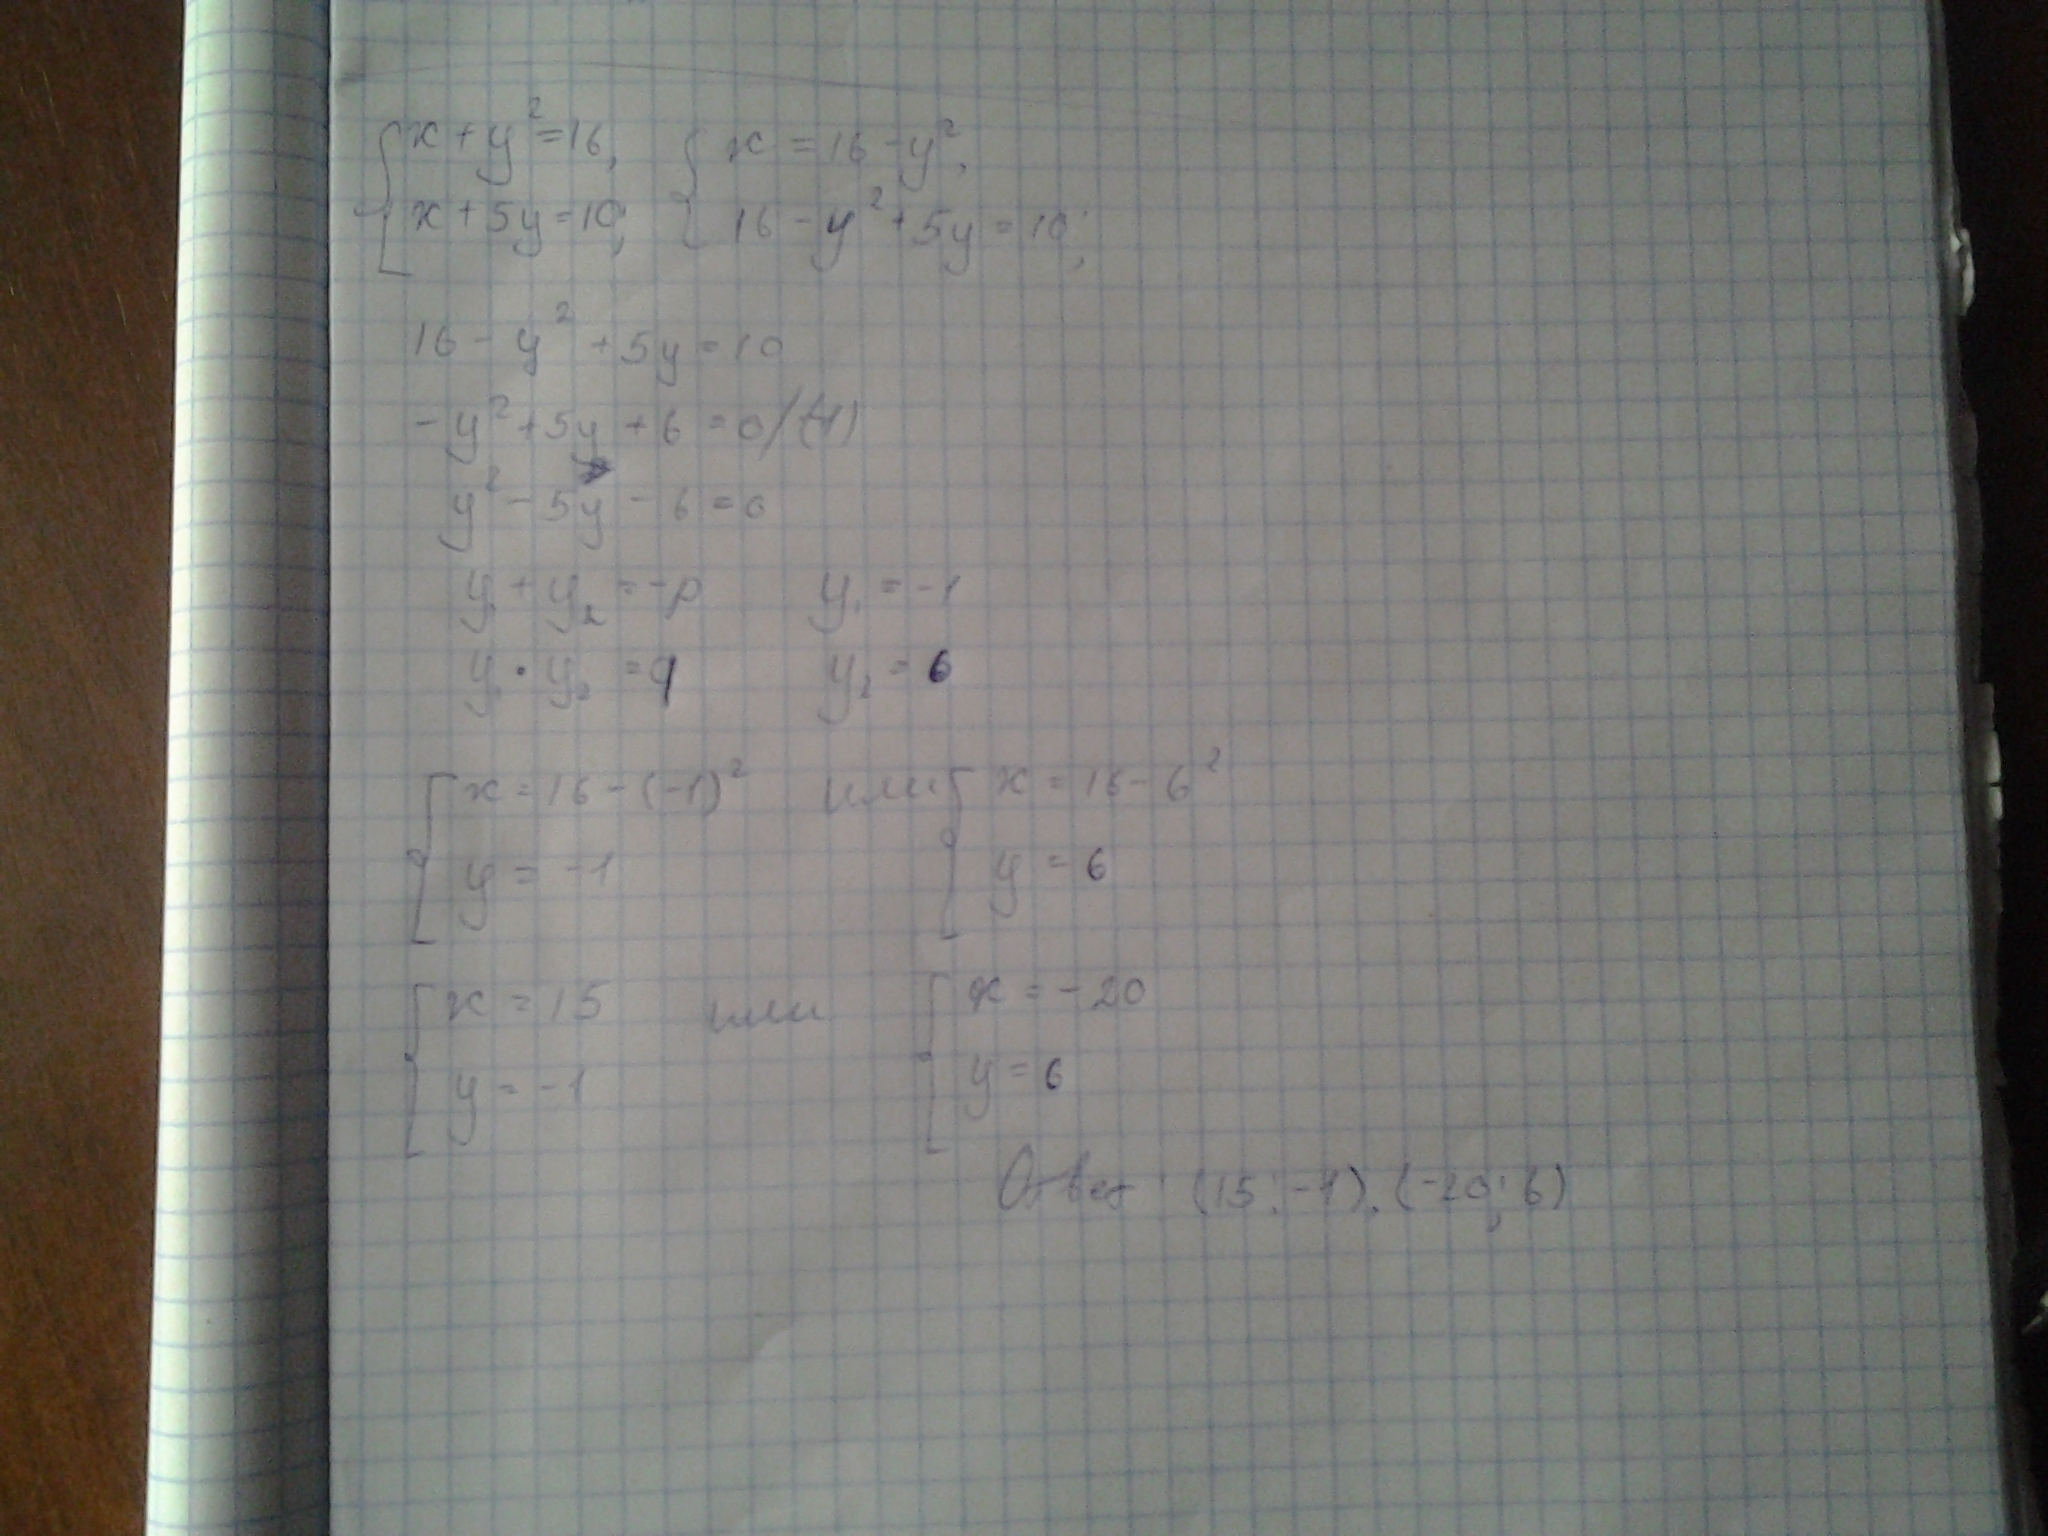 {x + y² = 16, {x = 16 - y²,
{x + 5y = 10; {16 - y² + 5y = 10;
16 - y² + 5y = 10
-y² + 5y + 6 = 0 /(-1)
y² - 5y - 6 = 0
y₁ + y₂ = -p y₁ = -1
y₁ · y₂ = q y₂ = 6
{x = 16 - (-1)² или {x = 16 - 6²
{y = -1 {y = 6
{x = 15 или {x = -20
{y = -1 {y = 6
Ответ: (15; -1), (-20; 6)